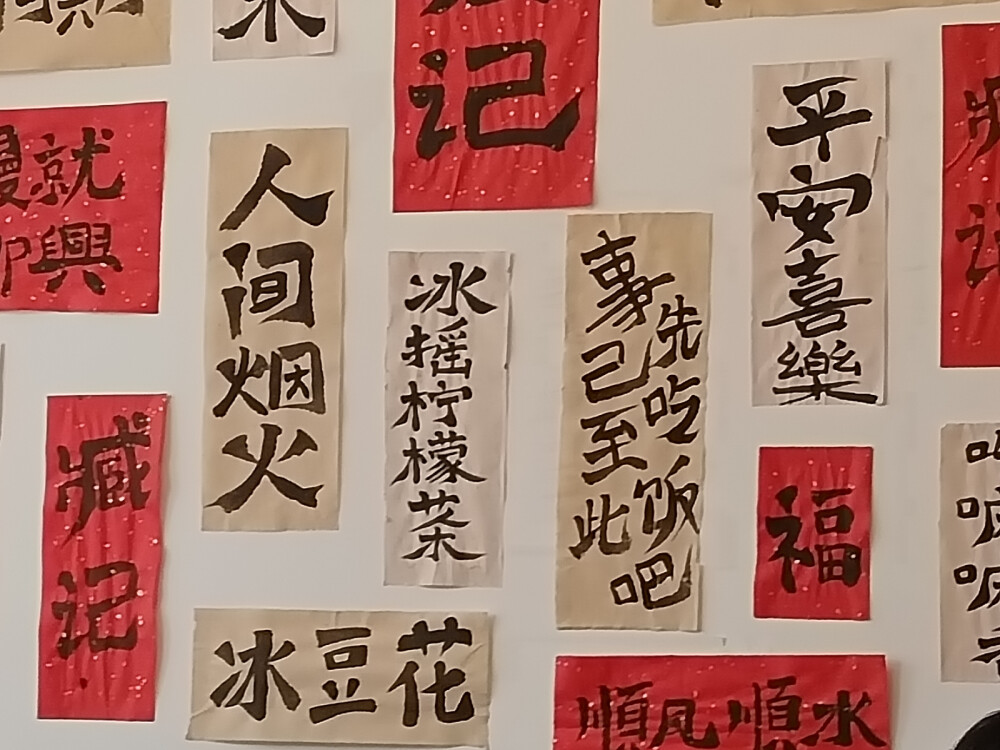 記
平安喜樂
就
興
人间烟火
冰摇柠檬茶
事已至此
先吃饭吧
臧记
福
冰豆花
順风順水